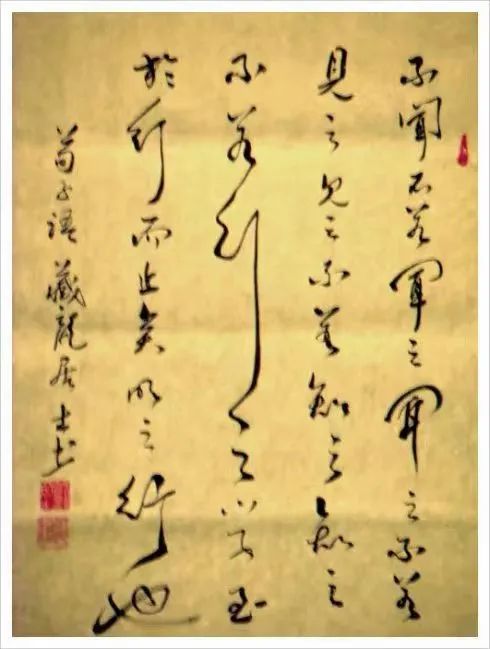 不聞不若聞之聞之不若
見之見之不若知之知之
不若行之學至
於行而止矣明之行也
荀子語 藏龍居士書